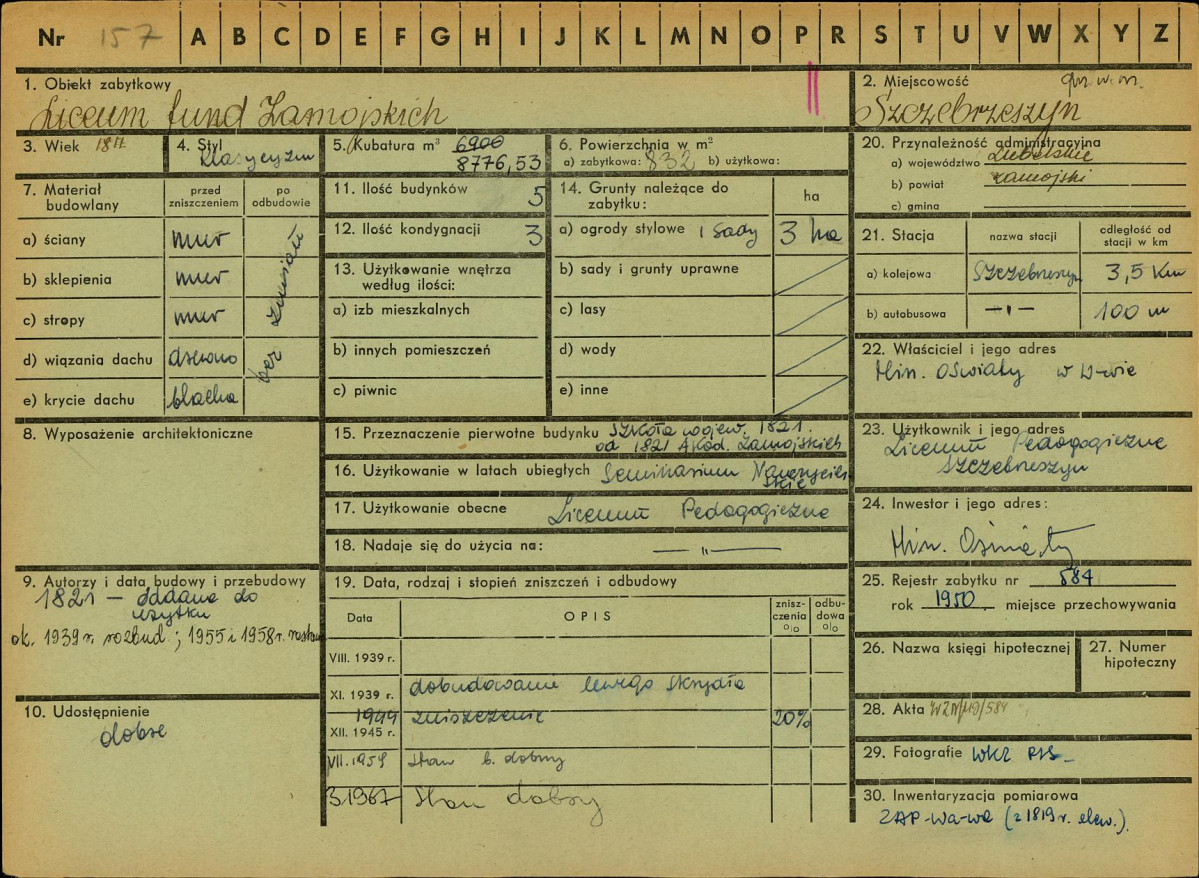 Nr 157 A B C D E F G H I J K L M N O P R S T U V W X Y Z
1. Obiekt zabytkowy
Liceum fund Zamojskich
2. Miejscowość
Szczebrzeszyn
3. Wiek
4. Styl
klasycyzm
5. Kubatura m³ 6900
8776,53
6. Powierzchnia w m²
a) zabytkowa: 832 b) użytkowa:
20. Przynależność administracyjna
a) województwo Lubelskie
b) powiat zamojski
c) gmina
7. Materiał budowlany
przed zniszczeniem
po odbudowie
a) ściany mur
b) sklepienia mur
c) stropy mur
d) wiązania dachu drewno
e) krycie dachu blacha
bez zmian
11. Ilość budynków 5
12. Ilość kondygnacji 3
13. Użytkowanie wnętrza
według ilości:
a) izb mieszkalnych
b) innych pomieszczeń
c) piwnic
14. Grunty należące do
zabytku:
ha
a) ogrody stylowe i sady 3 ha
b) sady i grunty uprawne
c) lasy
d) wody
e) inne
21. Stacja
nazwa stacji
odległość od
stacji w km
a) kolejowa Szczebrzeszyn 3,5 Km
b) autobusowa —"— 100 m
22. Właściciel i jego adres
Min. Oświaty w W-wie
8. Wyposażenie architektoniczne
15. Przeznaczenie pierwotne budynku Szkoła wojew. 1821.
od 1821 Akad. Zamojskich
16. Użytkowanie w latach ubiegłych Seminarium Nauczyciel
skie
17. Użytkowanie obecne Liceum Pedagogiczne
18. Nadaje się do użycia na: —"—
23. Użytkownik i jego adres
Liceum Pedagogiczne
Szczebrzeszyn
24. Inwestor i jego adres:
Min. Oświaty
9. Autorzy i data budowy i przebudowy
1821 — oddane do
użytku
ok. 1939 r. rozbud.; 1955 i 1958 r.
10. Udostępnienie
dobre
19. Data, rodzaj i stopień zniszczeń i odbudowy
Data
OPIS
znisz-
czenia
o/o
odbu-
dowa
o/o
VIII. 1939 r.
XI. 1939 r. dobudowanie lewego skrzydła
1944
XII. 1945 r. zniszczenie 20%
VII.1959 Stan b. dobry
3.1967 Stan dobry
25. Rejestr zabytku nr 584
rok 1950 miejsce przechowywania
26. Nazwa księgi hipotecznej
27. Numer
hipoteczny
28. Akta
29. Fotografie WKZ
30. Inwentaryzacja pomiarowa
ZAP-Wa-wa (z 1819 r. elew.).